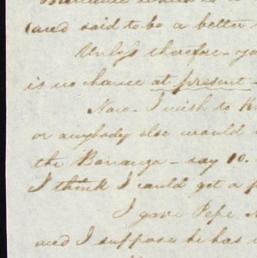 said to be a better
therefore - you
is no chance at present -
Now. I wish to
or anybody else would
the Bonanza - say 10.
I think I could get a
I gave Pepe
and I suppose he has